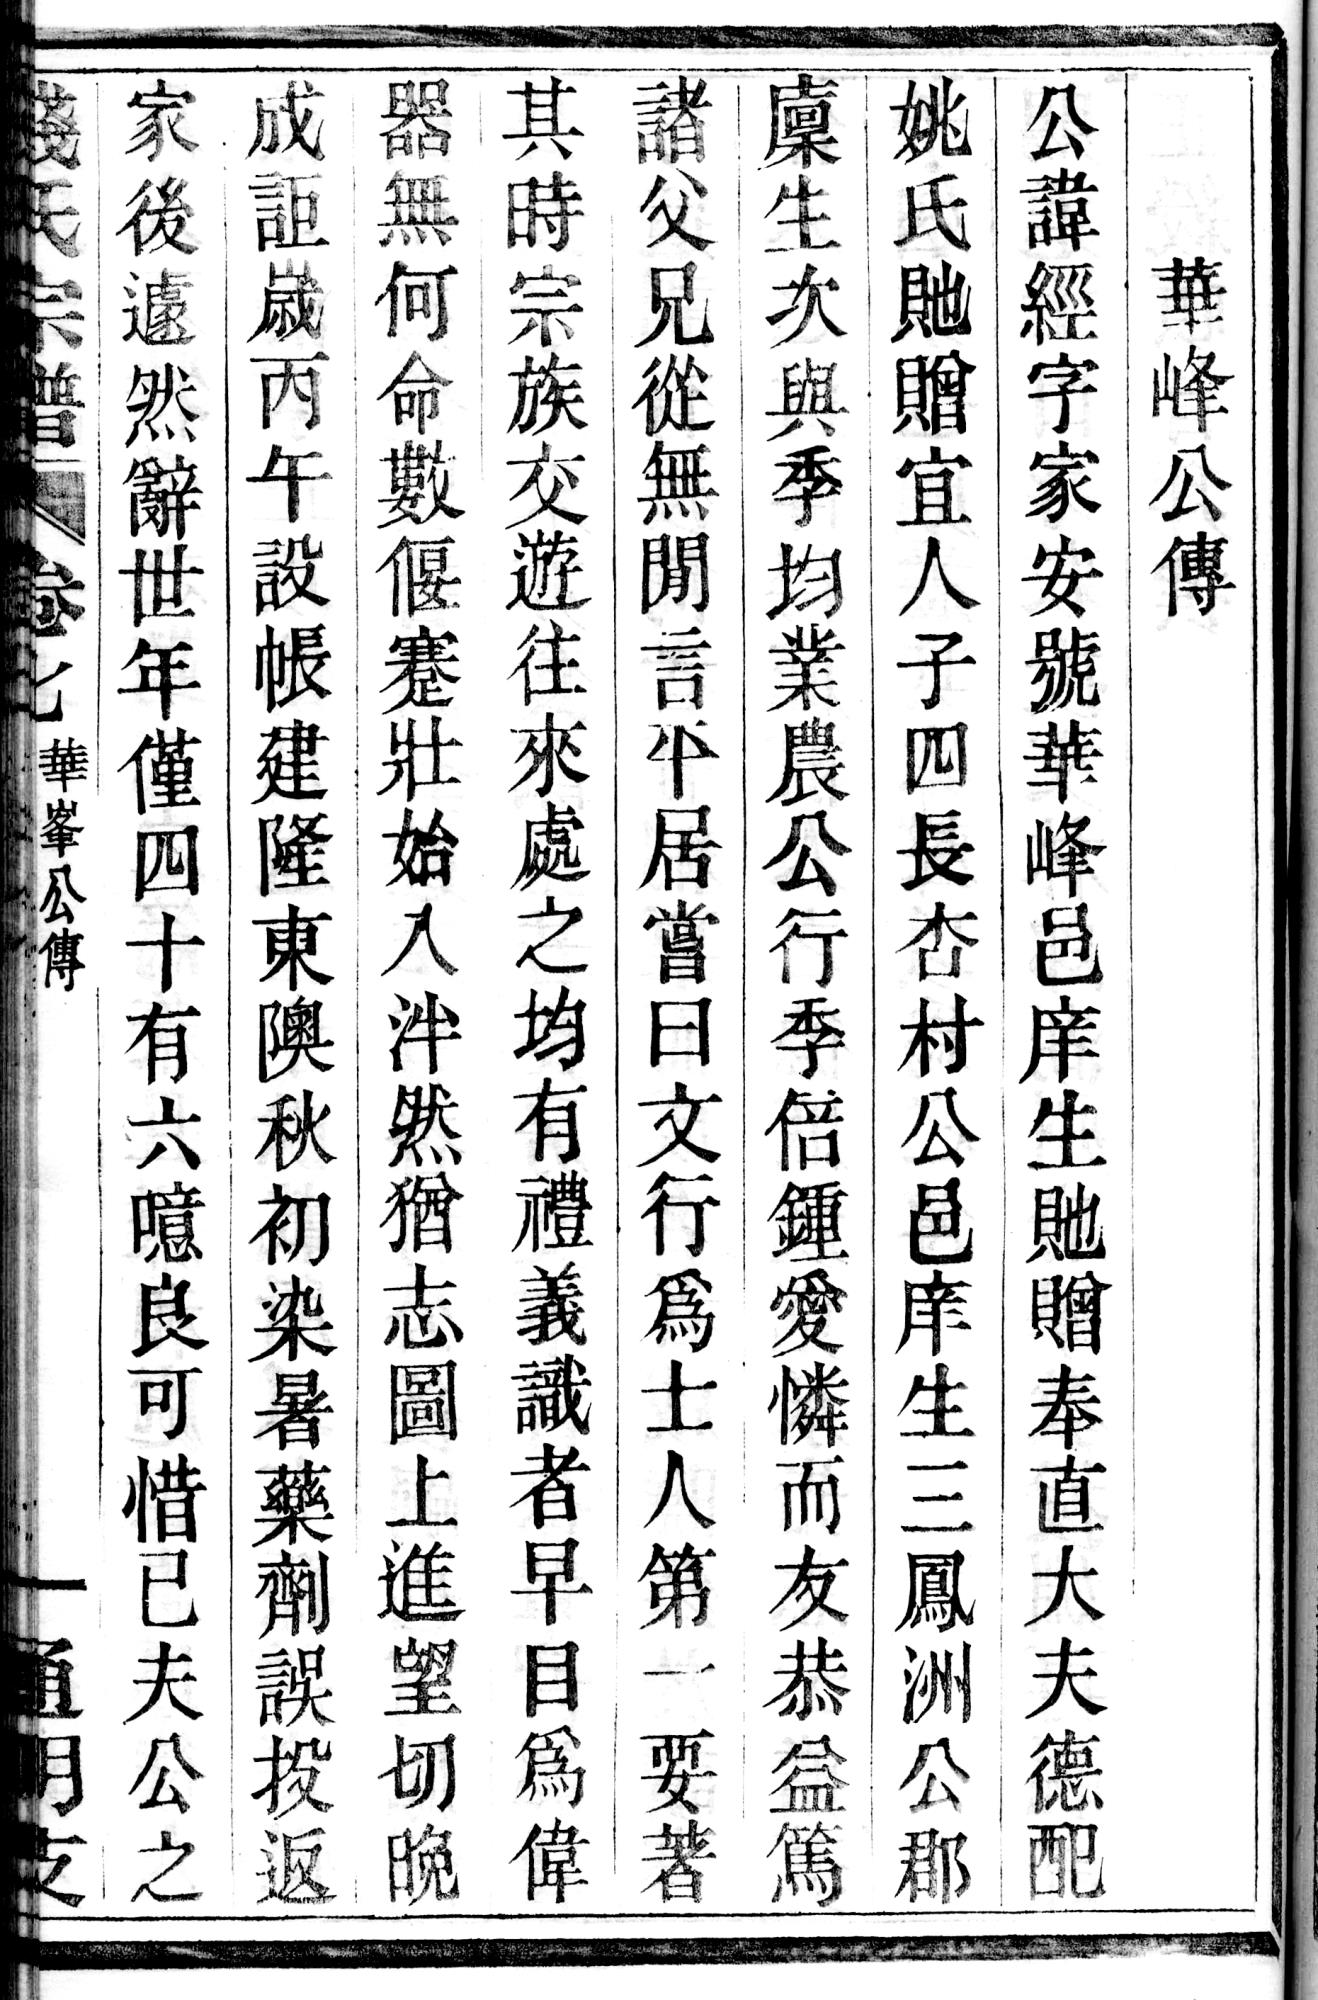 華峰公傳
公諱經字家安號華峰邑庠生貤贈奉直大夫德配
姚氏貤贈宜人子四長杏村公邑庠生三鳳洲公郡
廩生次與季均業農公行季倍鍾愛憐而友恭益篤
諸父兄從無閒言平居嘗曰文行爲士人第一要著
其時宗族交遊往來處之均有禮義識者早目爲偉
器無何命數偃蹇壯始入泮然猶志圖上進望切晚
成詎歲丙午設帳建隆東隩秋初染暑藥劑誤投返
家後遽然辭世年僅四十有六噫良可惜已夫公之
氏宗譜 卷七 華峯公傳 一 通明支